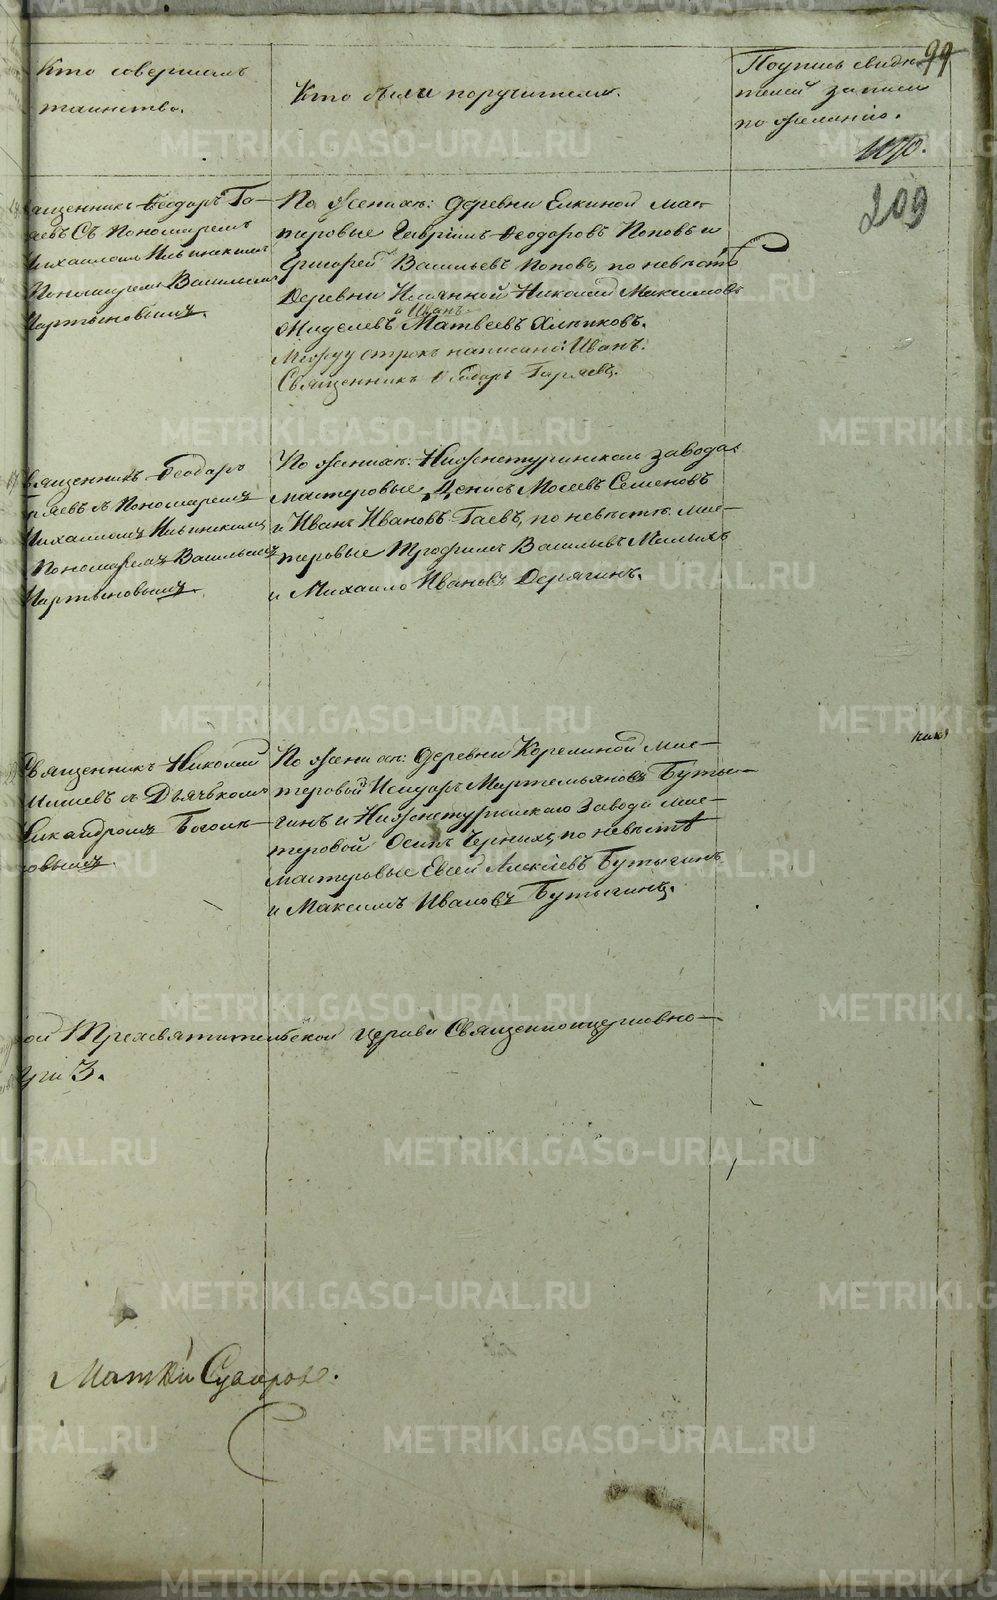 99
Кто совершалъ
таинство.
Кто были поручители.
Подпись свидѣ-
телей записи
по желанію.
209
ященникъ Ѳеодоръ Га-
ряевъ съ Пономаремъ
Михаиломъ Ильинскимъ
Пономаремъ Васильемъ
Мартыновымъ.
По женихѣ: деревни Елкиной мас-
теровые Гавріилъ Ѳеодоровъ Поповъ и
Григорей Васильевъ Поповъ, по невѣстѣ
деревни Николай Максимовъ
и Иванъ
Матвеевъ
Между строкъ написано: Иванъ.
Священникъ Ѳеодоръ Гаряевъ.
Священникъ Ѳеодоръ
Гаряевъ съ Пономаремъ
Михаиломъ Ильинскимъ
Пономаремъ Васильемъ
Мартыновымъ.
По женихѣ: Нижнетуринскаго завода
мастеровые Денисъ Мосеевъ Семеновъ
и Иванъ Ивановъ Гаевъ, по невѣстѣ мас-
теровые Трофимъ Васильевъ Малыхъ
и Михаило Ивановъ Дерягинъ.
Священникъ Николай
съ Дьячкомъ
Никандромъ Богом-
овымъ.
По женихѣ: деревни Корелиной мас-
теровой Исидоръ Мартемьяновъ Буты-
гинъ и Нижнетуринскаго завода мас-
теровой Осипъ Черныхъ, по невѣстѣ
мастеровые Евсей Алексѣевъ Бутыгинъ
и Максимъ Ивановъ Бутыгинъ.
ой Трехсвятительской церкви Священноцерковно-
3.
METRIKI.GASO-URAL.RU